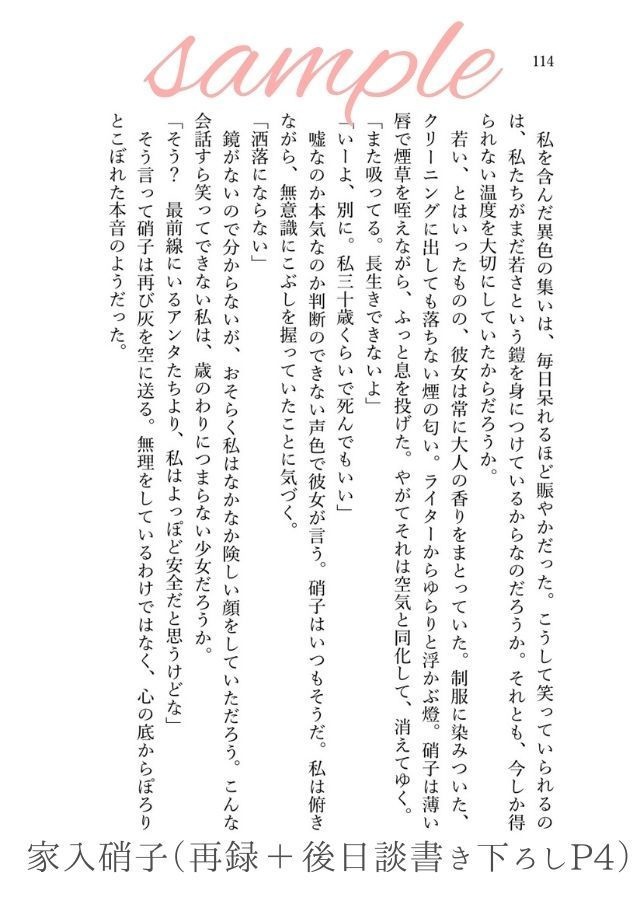 sample
114
私を含んだ異色の集いは、毎日呆れるほど賑やかだった。こうして笑っていられるの
は、私たちがまだ若さという鎧を身につけているからなのだろうか。それとも、今しか得
られない温度を大切にしていたからだろうか。
若い、とはいったものの、彼女は常に大人の香りをまとっていた。制服に染みついた、
クリーニングに出しても落ちない煙の匂い。ライターからゆらりと浮かぶ燈。硝子は薄い
唇で煙草を咥えながら、ふっと息を投げた。やがてそれは空気と同化して、消えてゆく。
「また吸ってる。長生きできないよ」
「いーよ、別に。私三十歳くらいで死んでもいい」
嘘なのか本気なのか判断のできない声色で彼女が言う。硝子はいつもそうだ。私は俯き
ながら、無意識にこぶしを握っていたことに気づく。
「洒落にならない」
鏡がないので分からないが、おそらく私はなかなか険しい顔をしていただろう。こんな
会話すら笑ってできない私は、歳のわりにつまらない少女だろうか。
「そう？　最前線にいるアンタたちより、私はよっぽど安全だと思うけどな」
そう言って硝子は再び灰を空に送る。無理をしているわけではなく、心の底からぽろり
とこぼれた本音のようだった。
家入硝子（再録＋後日談書き下ろしP4）